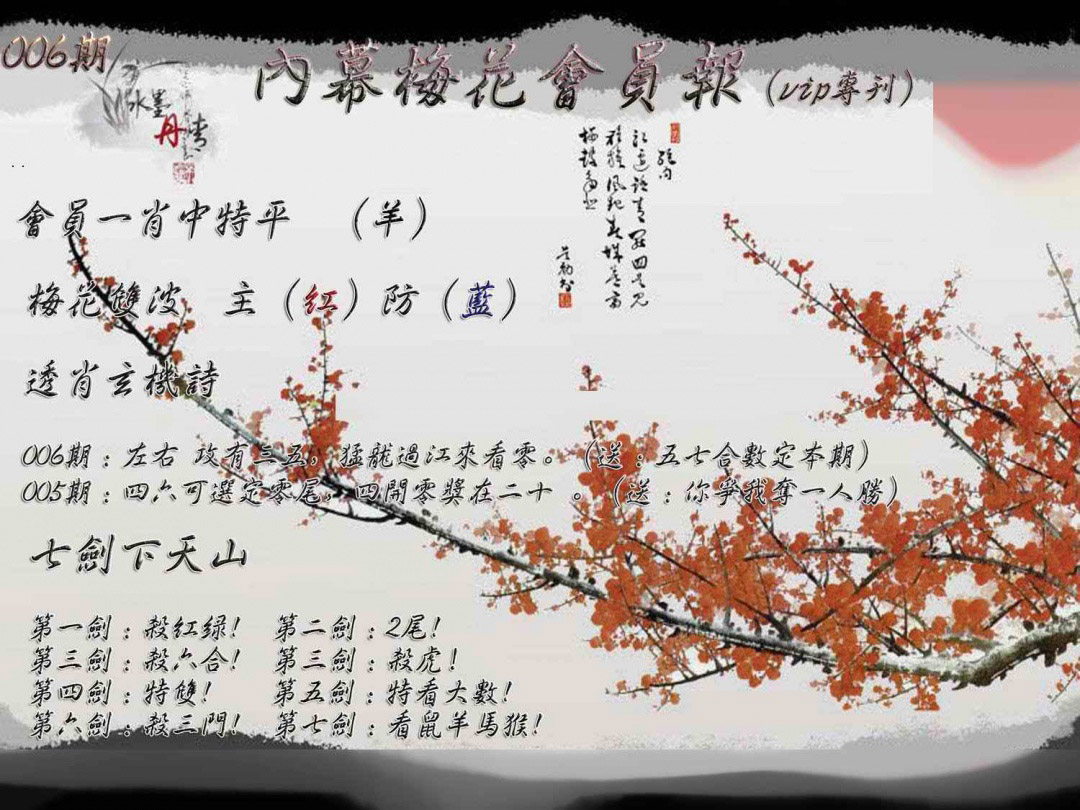 006期
內幕梅花會員報(vip專刊)
水墨
丹青
會員一肖中特平 （羊）
梅花雙波 主（紅）防（藍）
透肖玄機詩
006期：左右 攻有三五，猛龍過江來看零。（送：五七合數定本期）
005期：四六可選定零尾，四開零獎在二十 。（送：你爭我奪一人勝）
七劍下天山
第一劍：殺紅绿! 第二劍：2尾!
第三劍：殺六合! 第三劍：殺虎!
第四劍：特雙! 第五劍：特看大數!
第六劍：殺三門! 第七劍：看鼠羊馬猴!